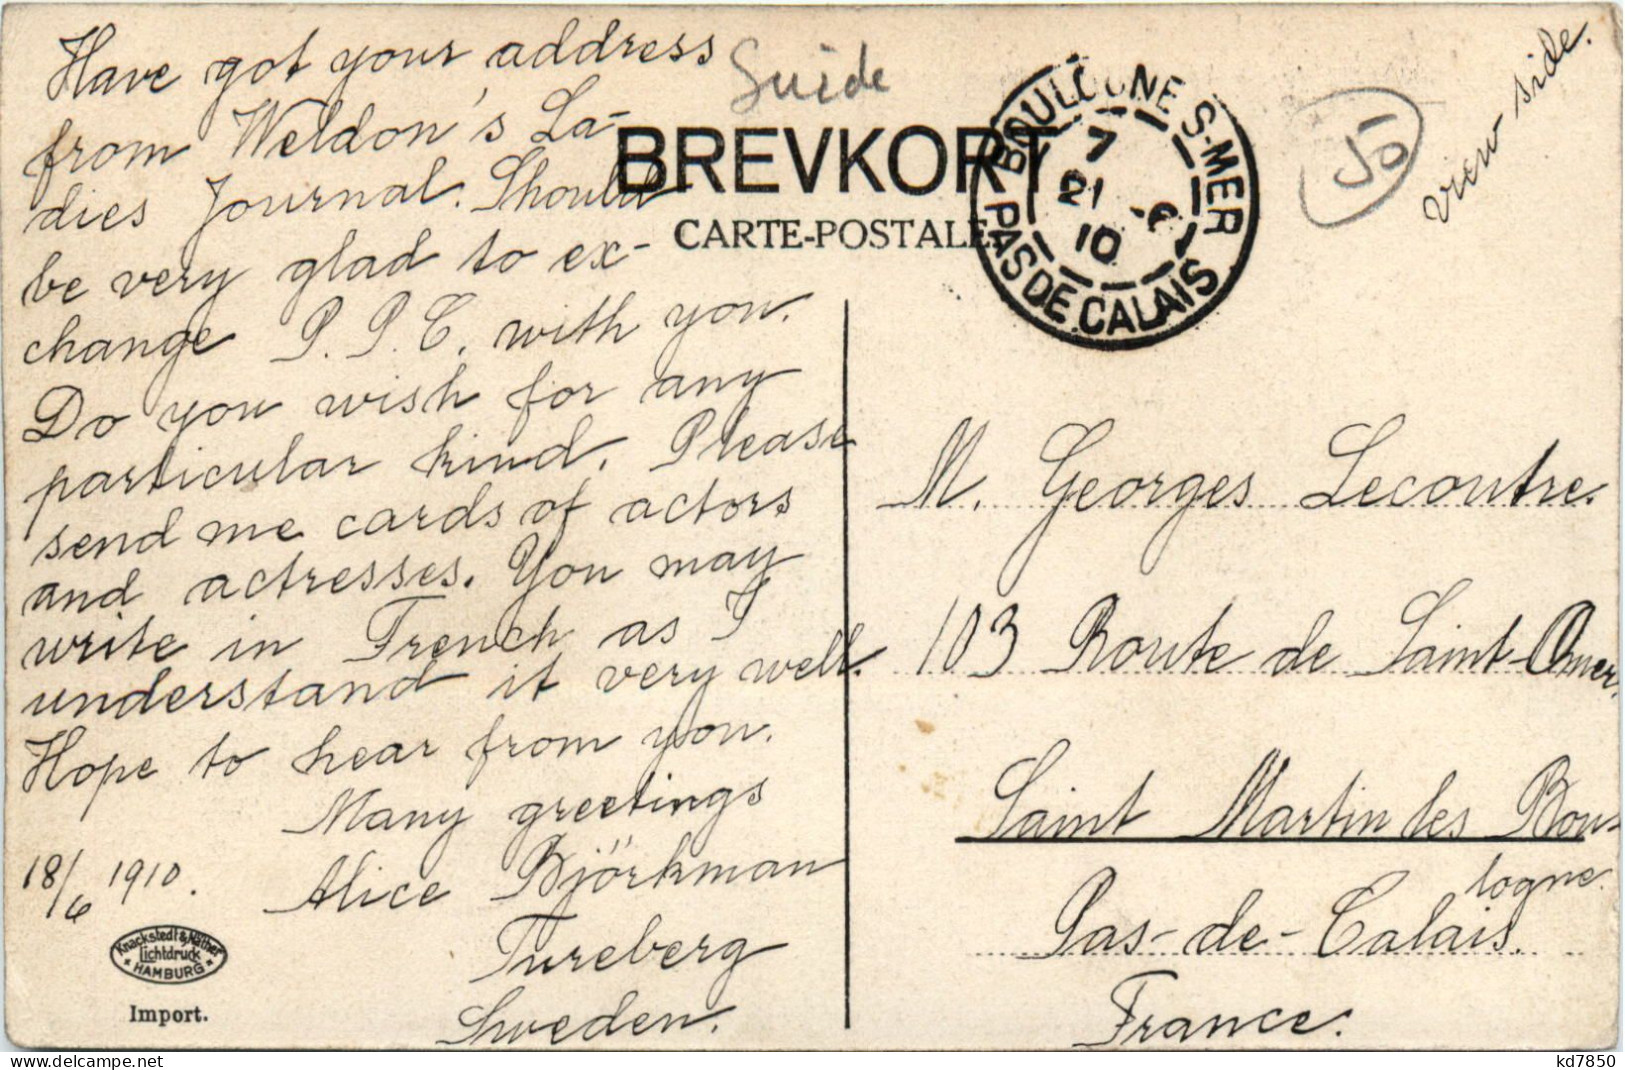 Have got your address
from Weldon's La-
dies Journal. Should
be very glad to ex-
change P. P. C. with you.
Do you wish for any
particular kind. Please
send me cards of actors
and actresses. You may
write in French as I
understand it very well.
Hope to hear from you.
Many greetings
18/6 1910.
Alice Björkman
Tureberg
Sweden.
Knackstedt & Näther
Lichtdruck
HAMBURG
Import.
BREVKORT
CARTE-POSTALE.
BOULOGNE-S-MER
7
21 - 6
10
PAS DE CALAIS
50
View side.
M. Georges Lecoutre.
103 Route de Saint-Omer,
Saint Martin les Bou-
logne.
Pas-de-Calais.
France.
kd7850